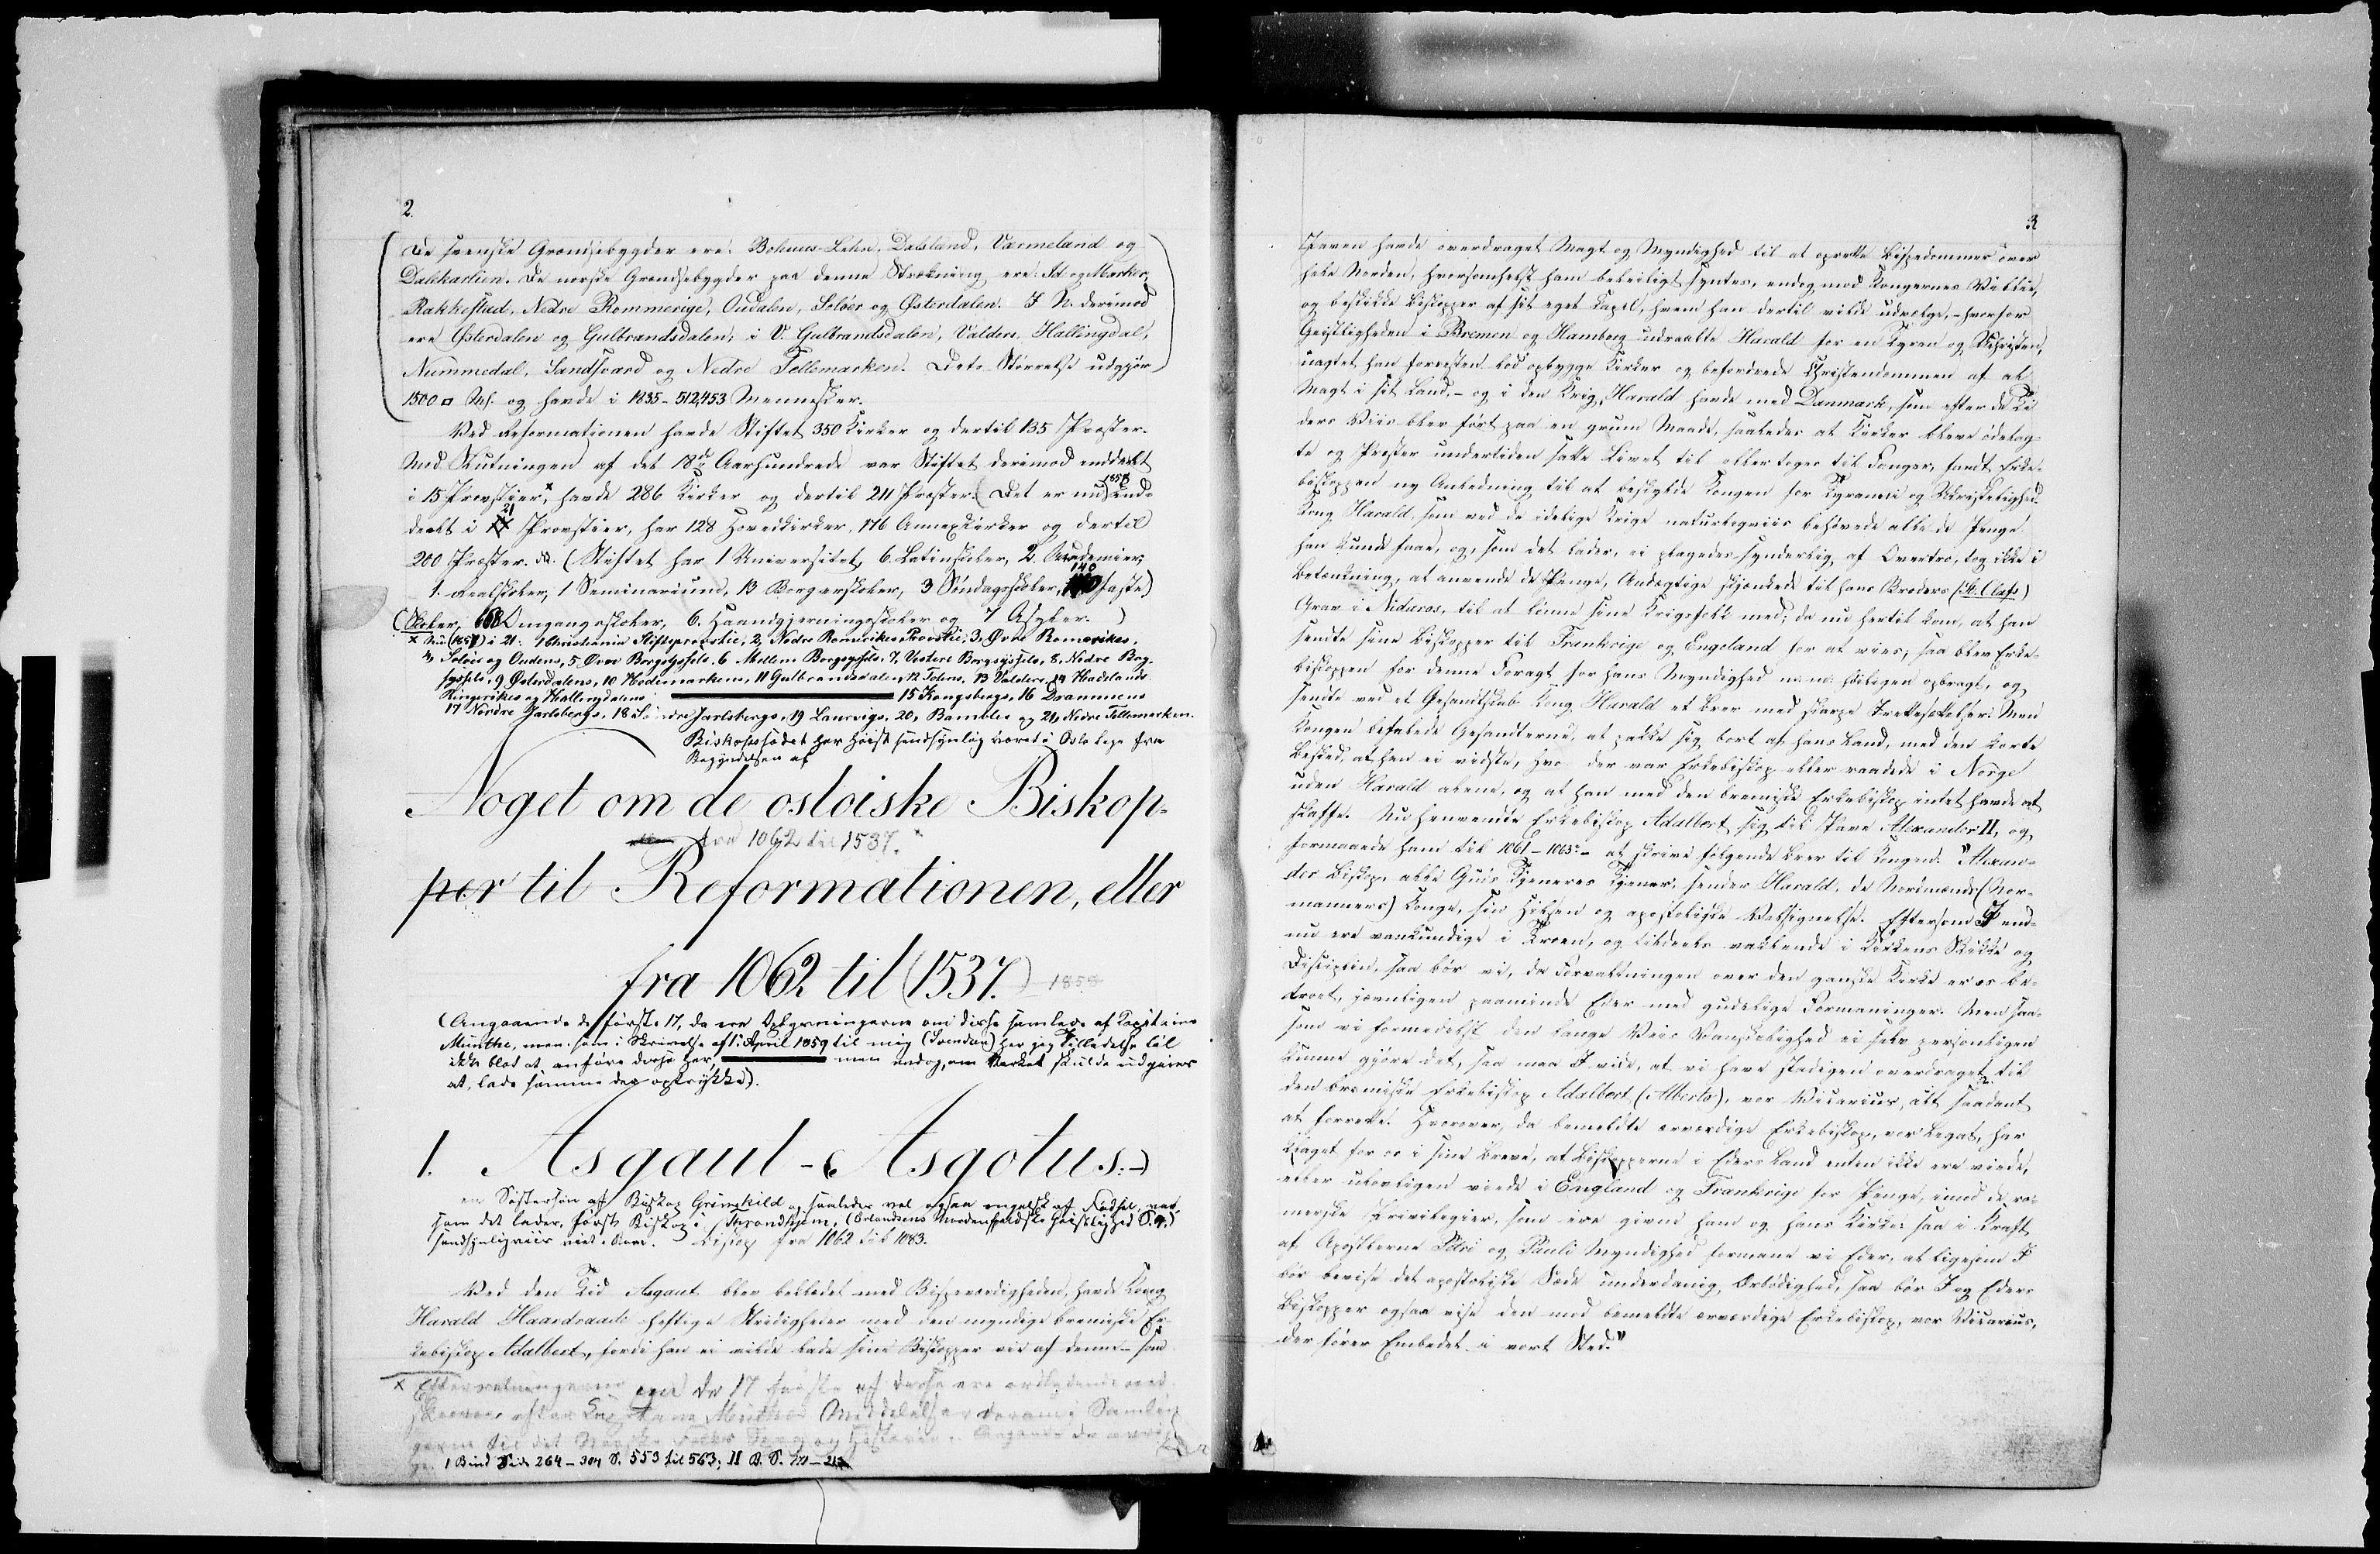 2.
De svenske Grændsebygder ere: Bohuus-Lehn, Dalsland, Värmeland og
Dalekarlien. De norske Grændsebygder paa denne Strækning ere: Id og Marker,
Rakkestad, Nedre Rommerige, Oudalen, Soløer og Østerdalen. I N. derimod
ere Østerdalen og Gulbrandsdalen; i V. Gulbrandsdalen, Valders, Hallingdal,
Nummedal, Sandsværd og Nedre Tellemarken. Dets Størrelse udgjør
1500 □ M. og havde i 1835 - 512,453 Mennesker.
Ved Reformationen havde Stiftet 350 Kirker og dertil 135 Præster.
Med Slutningen af det 18de Aarhundrede var Stiftet derimod inddeelt
i 15 Provstier,x havde 286 Kirker og dertil 211 Præster. (Det er nu) ind-
deelt i 21 Provstier, har 128 Hovedkirker, 176 Annexkirker og dertil
200 Præster. (Stiftet har 1 Universitet, 6 Latinskoler, 2 Academier,
1 Realskoler, 1 Seminarium, 13 Borgerskoler, 3 Søndagsskoler, 140 faste)
(Skoler, Omgangsskoler, 6 Haandgjerningsskoler og 7 Asyler.)
x Nu (1857) i 21: 1 Christiania Stiftsprovstie, 2, Nedre Romerikes Provstie, 3, Øvre Romerikes,
4, Soløer og Oudens, 5 Øvre Borgesyssels, 6 Mellem Borgesyssels, 7, Vestre Borgesyssels, 8, Nedre Borge-
syssels, 9 Østerdalens, 10 Hedemarkens, 11 Gulbrandsdalens, 12 Totens, 13 Valders, 14 Hadelands
Ringerikes og Hallingdalens 15 Kongsbergs, 16 Drammens
17 Nordre Jarlsbergs, 18 Søndre Jarlsbergs, 19 Laurvigs, 20, Bamble og 21, Nedre Tellemarken.
Biskopssædet har høist sandsynlig været i Oslo lige fra
Begyndelsen af
Noget om de osloiske Biskop-
fra 1062 til 1537.x
per til Reformationen, eller
fra 1062 til (1537.) 1858
(Angaaende de første 17, da ere Oplysningerne om disse samlede af Kapitaine
Munthe, men som i Skrivelse af 1. April 1859 til mig (Svendsen) har jeg Tilladelse til
ikke blot at anføre disse her, men endog, om Værket skulde udgives
at lade samme deri optrykke).
1. Asgaut - (Asgotus.)
en Søstersøn af Biskop Grimkild og saaledes vel ogsaa engelsk af Fødsel, var,
som det lader, først Biskop i Throndhjem, (Erlandsens Nordenfjeldske Geistlighed S. 4.)
sandsynligviis viet i Rom. Biskop fra 1062 til 1083.
Ved den Tid Asgaut blev beklædt med Bispeværdigheden, havde Kong
Harald Haardraade heftige Stridigheder med den myndige bremiske Er-
kebiskop Adalbert, fordi han ei vilde lade sine Biskopper vie af denne – som
x Efterretningerne om de 17 første af disse ere ordlydende ned-
skrevne efter Capitaine Munthes Meddelelser derom i Samlin-
gerne til det Norske Folks Sprog og Historie. Angaaende de øvri-
ge. 1 Bind Side 264 - 304 S. 553 til 563; II B. S.
3
Paven havde overdraget Magt og Myndighed til at oprette Bispedømmer over
hele Norden, hvorsomhelst ham beleiligt syntes, endog mod Kongernes Villie,
og beskikke Biskopper af sit eget Kapel, hvem han dertil vilde udvælge, – hvorfor
Geistligheden i Bremen og Hamborg udraabte Harald for en Tyran og
uagtet han forresten lod opbygge Kirker og befordrede Christendommen af al
Magt i sit Land, – og i den Krig, Harald havde med Danmark, som efter de Ti-
ders Viis blev ført paa en grum Maade, saaledes at Kirker bleve ødelag-
te og Præster undertiden satte Livet til eller toges til Fanger, fandt Erke-
biskoppen ny Anledning til at beskylde Kongen for Tyranni og
Kong Harald, som ved de idelige Krige naturligviis behøvede alle de Penge
han kunde faae, og, som det lader, ei plagedes synderlig af Overtro, tog ikke i
Betænkning, at anvende de Penge, Andægtige skjænkede til hans Broders (St. Olafs)
Grav i Nidaros, til at lønne sine Krigsfolk med; da nu hertil kom, at han
sendte sine Biskopper til Frankrige og Engeland for at vies, saa blev Erke-
biskoppen for denne Foragt for hans Myndighed høiligen opbragt, og
sendte ved et Gesandtskab Kong Harald et Brev med skarpe Irettesættelser. Men
Kongen befalede Gesandterne, at pakke sig bort af hans Land, med den korte
Besked, at han ei vidste, hvo der var Erkebiskop eller raadede i Norge
uden Harald alene, og at han med den bremiske Erkebiskop intet havde at
skaffe. Nu henvendte Erkebiskop Adalbert sig til Pave Alexander II, og
formaaede ham til 1061 - 1063 - at skrive følgende Brev til Kongen: "Alexan-
der Biskop, alle Guds Tjeneres Tjener, sender Harald, de Nordmænds (Nor-
manners) Konge, sin Hilsen og apostoliske Velsignelse. Eftersom I end-
nu ere vankundige i Troen, og tildeels vaklende i Kirkens Skikke og
Disciplin, saa bør vi, da Forvaltningen over den ganske Kirke er os be-
troet, jævnligen paaminde Eder med gudelige Formaninger. Men saa-
som vi formedelst den lange Veis Vanskelighed ei selv personligen
kunne gjøre det, saa maa I vide, at vi have stadigen overdraget til
den bremiske Erkebiskop Adalbert (Alberto), vor Vicarius, alt saadant
at forrette. Hvorover, da bemeldte ærværdige Erkebiskop, vor Legat, har
klaget for os i sine Breve, at Biskopperne i Eders Land enten ikke ere viede,
eller ulovligen viede i England og Frankrige for Penge, imod de ro-
merske Privilegier, som ere givne ham og hans Kirke: saa i Kraft
af Apostlerne Petri og Pauli Myndighed formane vi Eder, at ligesom I
bør bevise det apostoliske Sæde underdanig Ærbødighed, saa bør I og Eders
Biskopper ogsaa vise den mod bemeldte ærværdige Erkebiskop, vor Vicarius,
der fører Embedet i vort Sted."